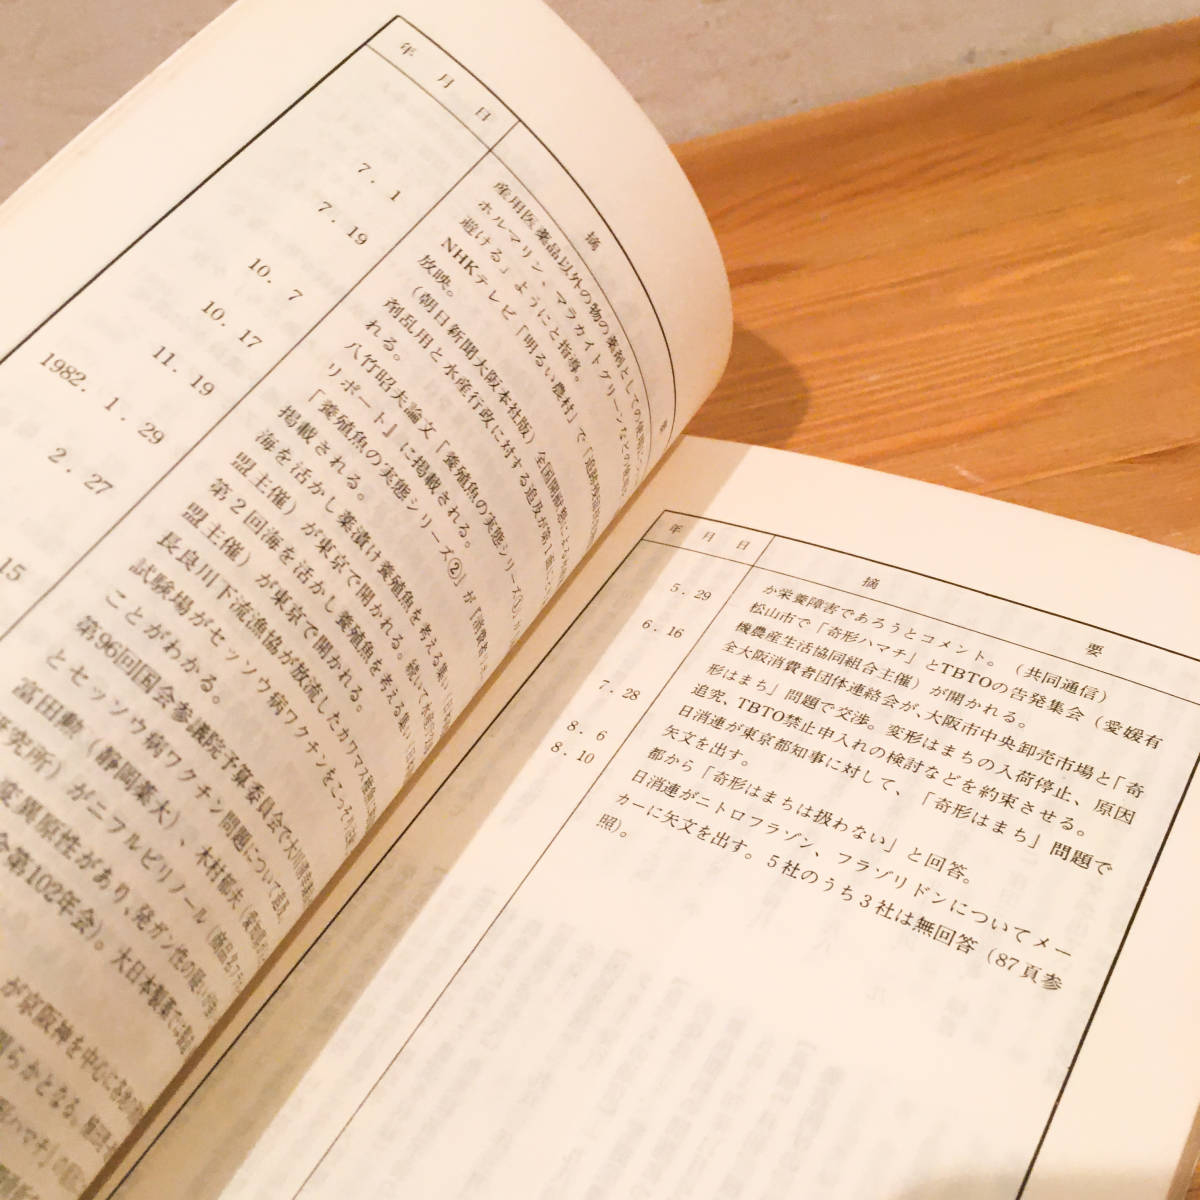 年 月 日
摘 要
7.1
7.19
10.7
10.17
11.19
1982. 1. 29
2.27
15
産用医薬品以外の物の薬剤としての
ホルマリン、マラカイトグリーンなどの
避ける」ようにと指導。
NHKテレビ「明るい農村」で「追跡
放映。
(朝日新聞大阪本社版)全国
剤乱用と水産行政に対する追及が第1面に
れる。
八竹昭夫論文「養殖魚の実態シリーズ
リポート』に掲載される。
「養殖魚の実態シリーズ②」が『消費者
掲載される。
海を活かし薬漬け養殖魚を考える集い(日
盟主催)が東京で開かれる。続いて
第2回海を活かし養殖魚を考える集い(日
盟主催)が東京で開かれる。
長良川下流漁協が放流したカワマス
試験場がセッソウ病ワクチンをこっそり
ことがわかる。
第96回国会参議院予算委員会で大川
とセッソウ病ワクチン問題について追及。
富田勲(静岡薬大)、木村郁夫(
究所)がニフルピリノール(商品名
変異原性があり、発ガン性の疑い
会第102年会)。大日本製薬では
が京阪神を中心に
明らかとなる。
ハマチ」の
年 月 日
摘 要
5.29
6.16
7.28
8.6
8.10
か栄養障害であろうとコメント。(共同通信)
松山市で「奇形ハマチ」とTBTOの告発集会(愛媛有
機農産生活協同組合主催)が開かれる。
全大阪消費者団体連絡会が、大阪市中央卸売市場と「奇
形はまち」問題で交渉。変形はまちの入荷停止、原因
追究、TBTO禁止申入れの検討などを約束させる。
日消連が東京都知事に対して、「奇形はまち」問題で
矢文を出す。
都から「奇形はまちは扱わない」と回答。
日消連がニトロフラゾン、フラゾリドンについてメー
カーに矢文を出す。5社のうち3社は無回答(87頁参
照)。